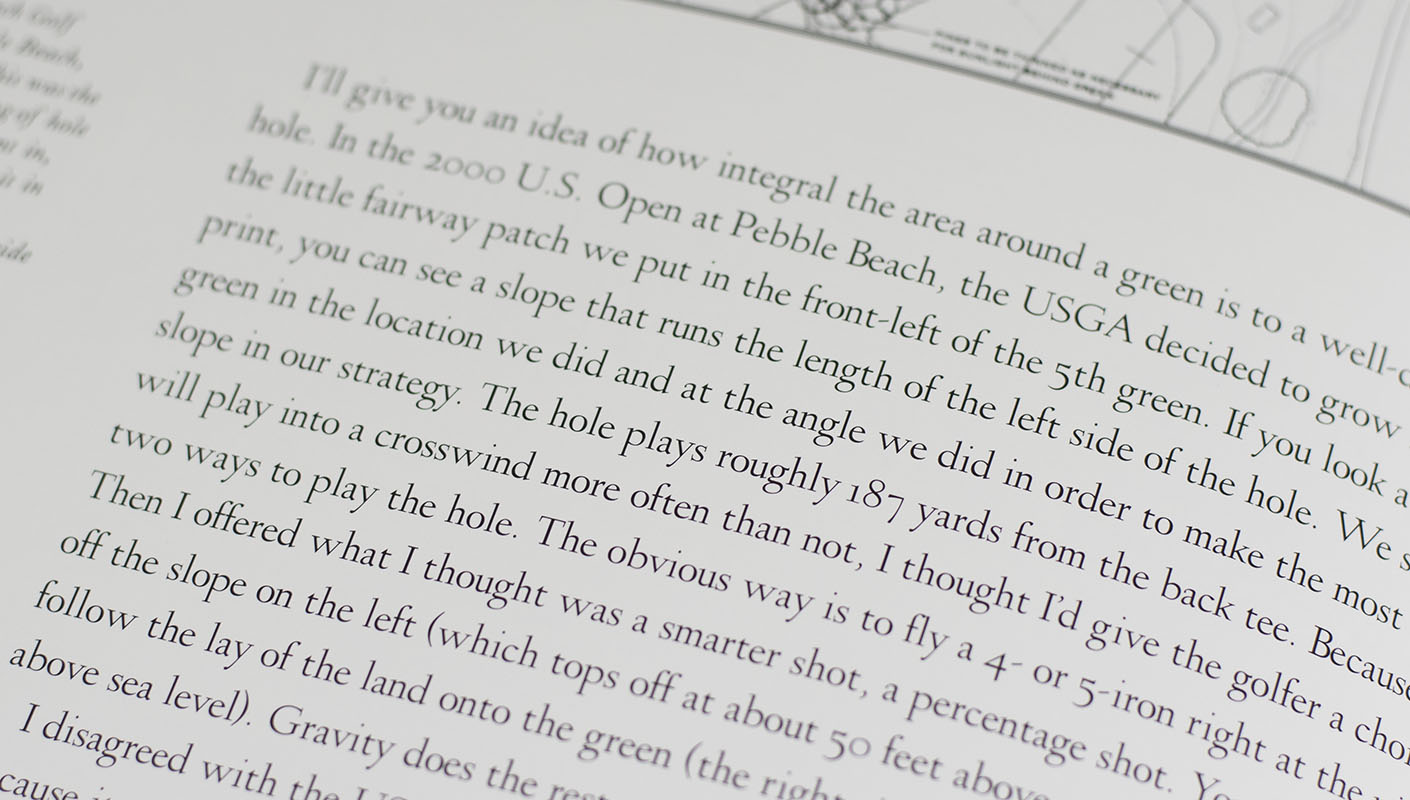 ch Golf
le Beach,
his was the
g of hole
ut in,
it in
ide
I'll give you an idea of how integral the area around a green is to a well-
hole. In the 2000 U.S. Open at Pebble Beach, the USGA decided to grow
the little fairway patch we put in the front-left of the 5th green. If you look a
print, you can see a slope that runs the length of the left side of the hole. We s
green in the location we did and at the angle we did in order to make the most
slope in our strategy. The hole plays roughly 187 yards from the back tee. Because
will play into a crosswind more often than not, I thought I'd give the golfer a cho
two ways to play the hole. The obvious way is to fly a 4- or 5-iron right at the
Then I offered what I thought was a smarter shot, a percentage shot. Yo
off the slope on the left (which tops off at about 50 feet above
follow the lay of the land onto the green (the right
above sea level). Gravity does the rest
I disagreed with the U
cause i